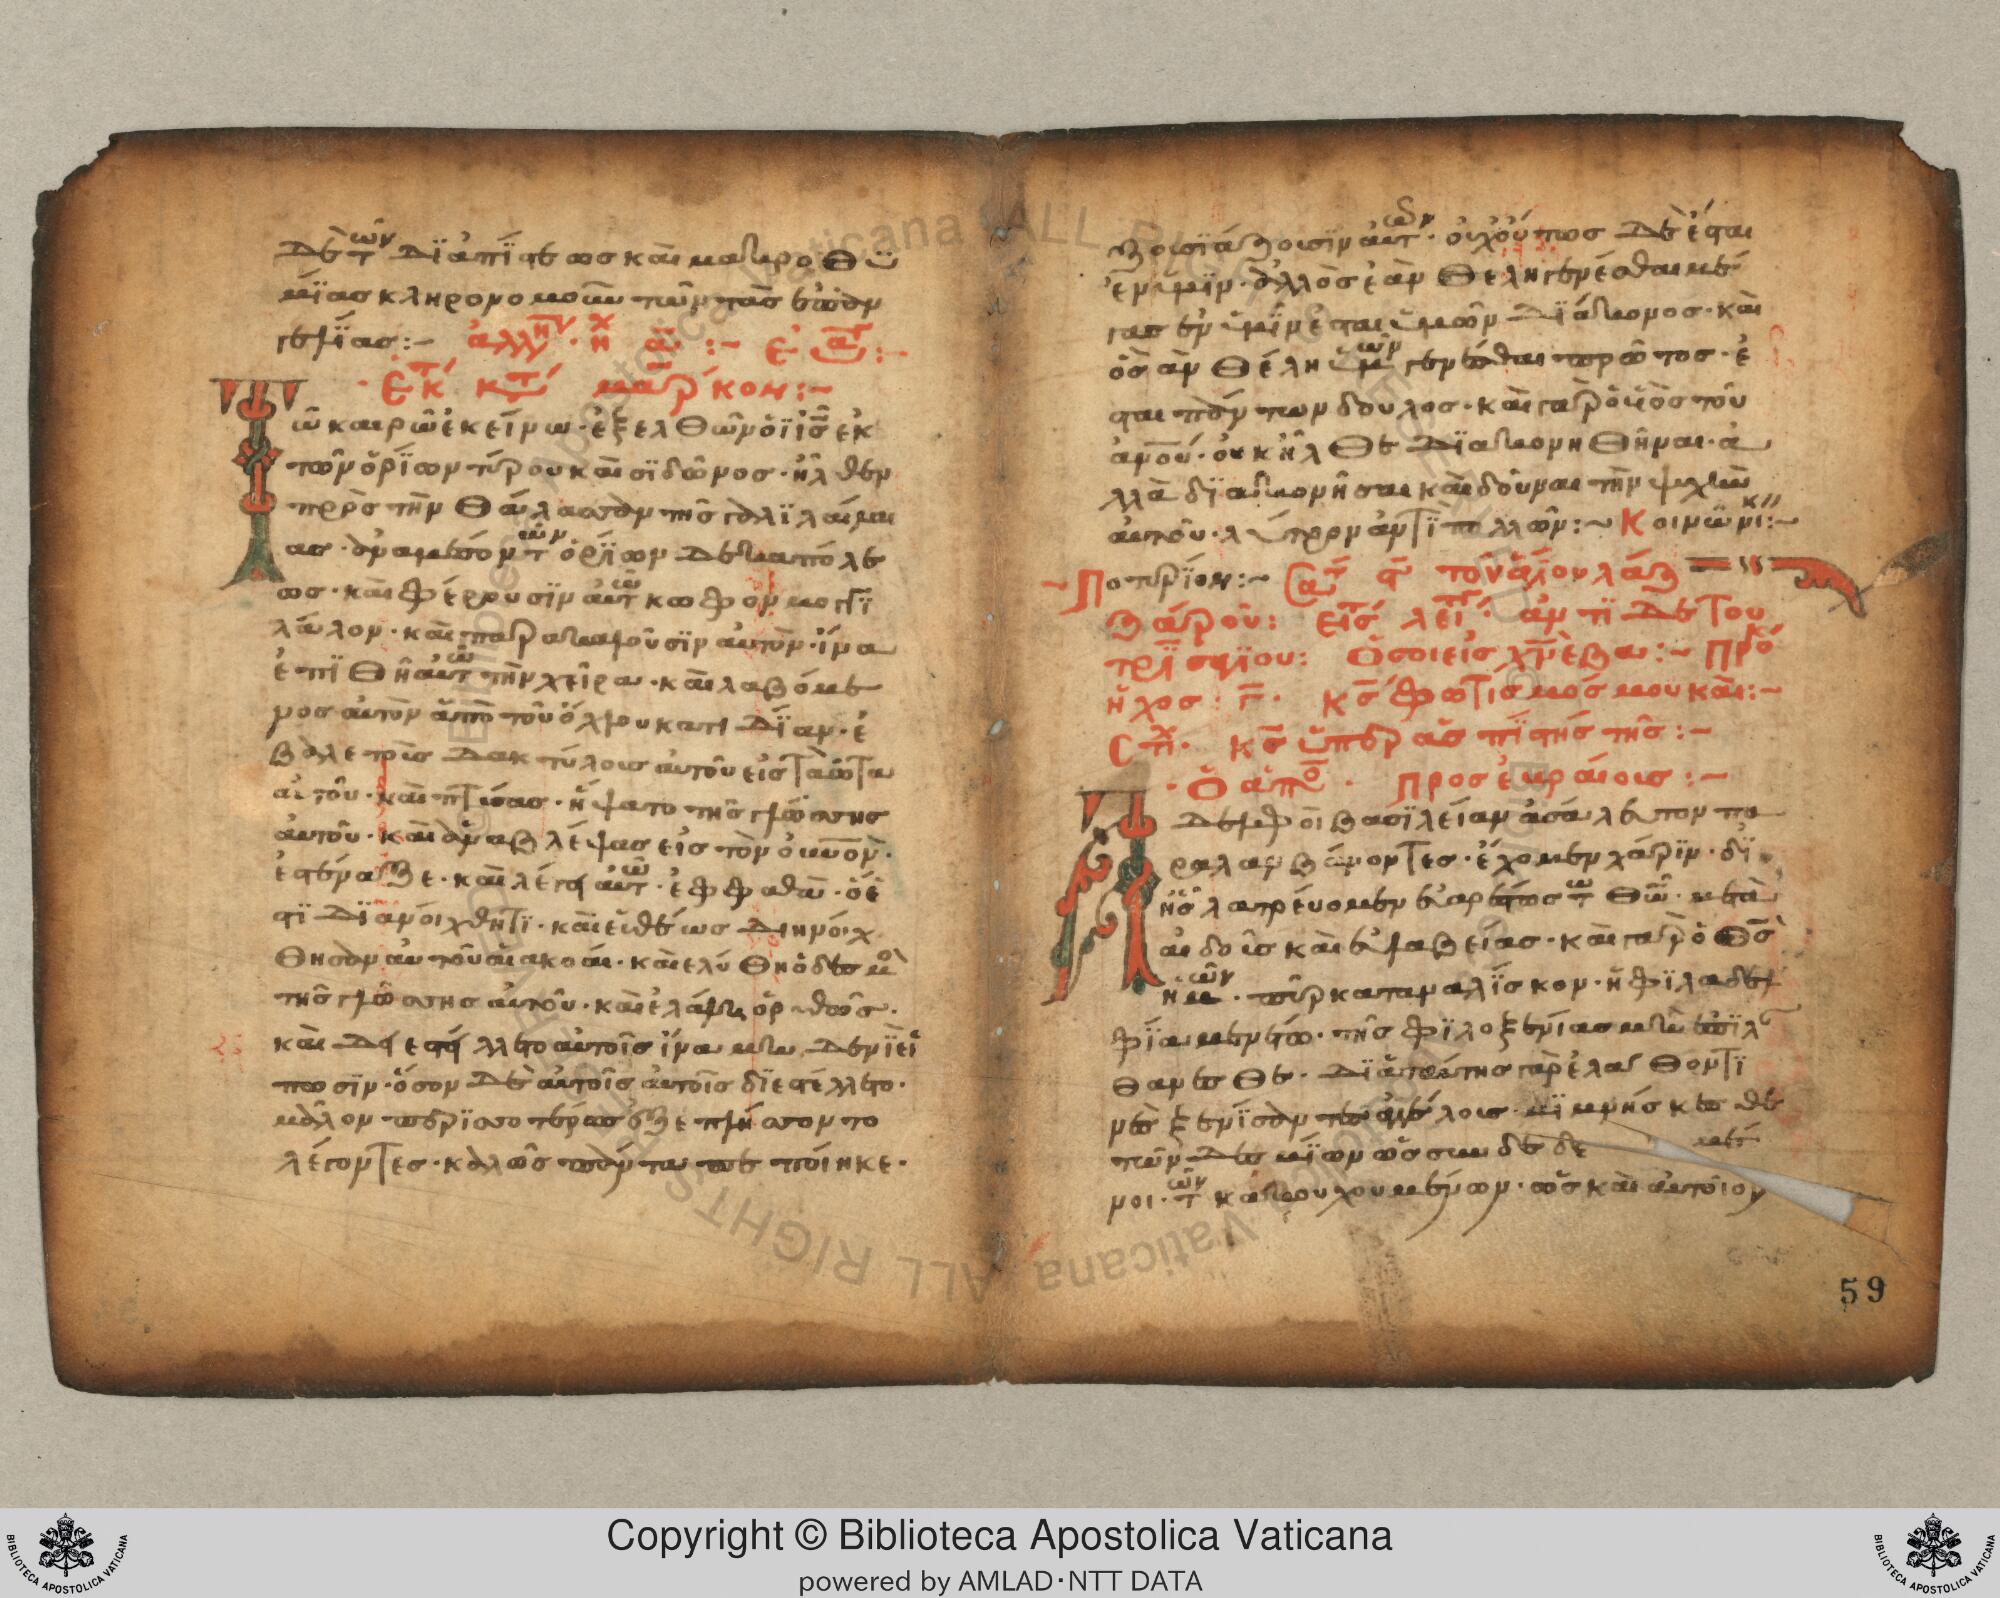 δὲ τῶν διὰ πίστεως καὶ μακροθυ
μίας κληρονομούντων τὰς ἐπαγ
γελίας:~ ἀλλη ἦχ α :~ εὐα:~
ἐκ κτ μαρκον:~
Τῶ καιρῶ ἐκείνω· ἐξελθὼν ὁ ἰς ἐκ
τῶν ὁρίων τύρου καὶ σιδῶνος· ἦλθεν
πρὸς τὴν θάλασσαν τῆς γαλιλαί
ας· ἀναμέσον τῶν ὁρίων δεκαπόλε
ως· καὶ φέρουσιν αὐτῶ κωφον μογι
λάλον· καὶ παρακαλοῦσιν αὐτὸν· ἵνα
ἐπιθῆ αὐτῶ τὴν χεῖρα· καὶ λαβόμε
νος αὐτὸν ἀπὸ τοῦ ὄχλου κατ ιδίαν· ἔ
βαλε τοὺς δακτύλους αὐτοῦ εἰς τὰ ὦτα
αὐτοῦ· καὶ πτύσας· ἥψατο τῆς γλώσσης
αὐτοῦ· καὶ ἀναβλέψας εἰς τὸν οὐνον·
ἐστέναξε· καὶ λέγει αὐτῶ· ἐφφαθα· ὅ ἐ
στι διανοίχθητι· καὶ εὐθέως διηνοίχ
θησαν αὐτοῦ αἱ ακοάι· καὶ ελύθη ὁ δεσμὸ
τῆς γλώσσης αὐτοῦ· καὶ ἐλάλει ὀρθῶς·
καὶ διεστείλλετο αὐτοῖς ἵνα μηδενὶ εἴ
πωσιν· ὅσον δὲ αὐτοῖς αὐτοῖς διεστέλλετο·
μᾶλλον περισσοτέρως ἐξεπλήσσοντο
λέγοντες· καλῶς πάντα πεποίηκε·
ζουσι άζουσιν αὐτῶν· οὐχ οὕτως δὲ ἔσται
ἐν ὑμῖν· ἀλλ ὸς ἐὰν θελη γενέσθαι μέ
γας ἐν ὑμῖν ἔσται ὑμῶν διάκονος· καὶ
ὃς ἀν θέλη ὑμῶν γενέσθαι πρῶτος· ἔ
σται πάντων δουλος· καὶ γαρ ὁ υἱὸς τοῦ
ἀνου· οὐκ ἦλθε διακονηθῆναι· ἀ
λλὰ διακονῆσαι καὶ δοῦναι τὴν ψυχὴν
αὐτοῦ· λύτρον ἀντὶ πολλῶν:~ Κοινωνικ:~
~ Ποτηρίον:~ Σα τοῦ ἁγίου λάζ
ζάρου: εἰς λει· ἀντι δε του
τρισαγίου: Ὅσοι εἰς χν ἐβα:~ Προκ
ἦχος: Γ· κς φωτισμός μου καὶ:~
Στιχ· κς ὑπερασπιστής τῆς:~
· Ὁ ἀπο· προς ἑβραίους:~
Ἀδελφοὶ βασιλείαν ἀσάλευτον πα
ραλαμβάνοντες· ἔχομεν χάριν· δι
ἧς λατρέυομεν εὐαρέστως τῶ θῶ· μετὰ
αἰδοῖς καὶ εὐλαβείας· καὶ γαρ ὁ θς
ἡμῶν· πῦρ καταναλίσκον· ἡ φιλαδελ
φία μενέτω· τῆς φιλοξενίας μὴ ἐπιλ
θανεσθε· διὰ ταύτης γὰρ ἔλαθον τι
νὲς ξενίσαν τὲς ἀγγέλους· μιμνήσκεσθε
τῶν δεσμίων ὡς συν δε δε μέ
νοι· τῶν κακουχουμένων· ὡς καὶ αὐτοὶ ον
59
Copyright © Biblioteca Apostolica Vaticana
powered by AMLAD·NTT DATA